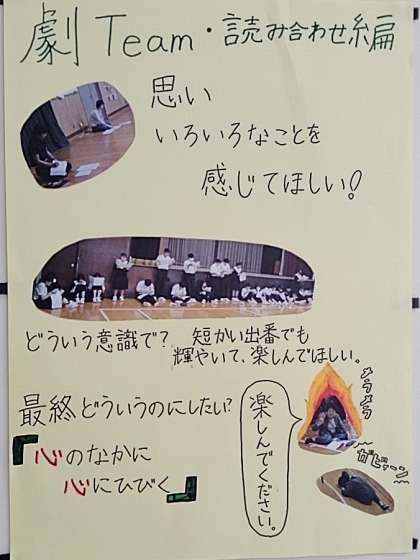 劇Team・読み合わせ編
思い
いろいろなことを
感じてほしい!
どういう意識で? 短かい出番でも
輝やいて、楽しんでほしい。
最終どういうのにしたい?
『心のなかに
心にひびく』
楽しんでください。
メラメラ
ガビーン